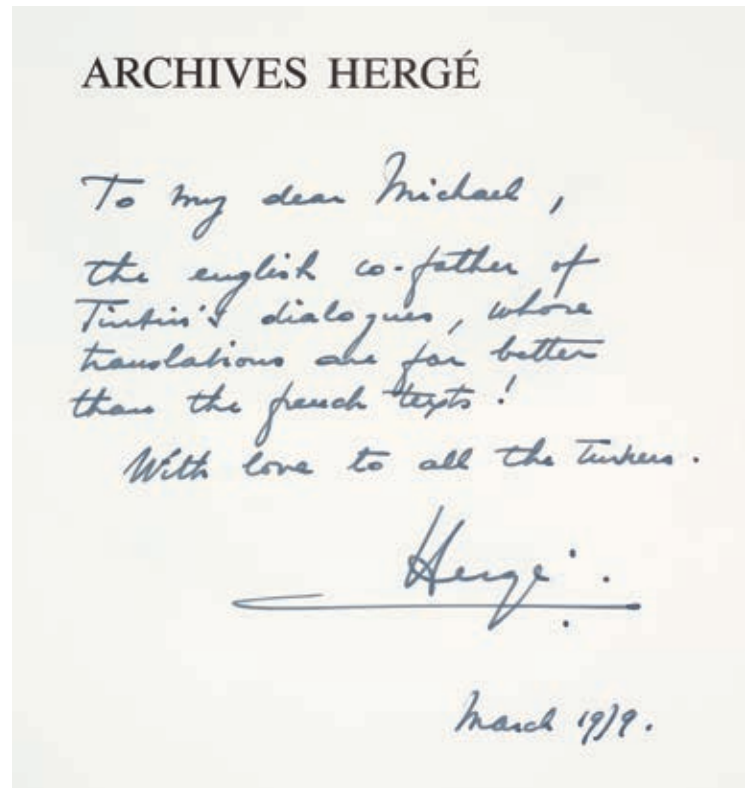 ARCHIVES HERGÉ
To my dear Michael,
the english co-father of
Tintin's dialogues, whose
translations are far better
than the french texts!
With love to all the Turners.
Hergé.
March 1979.